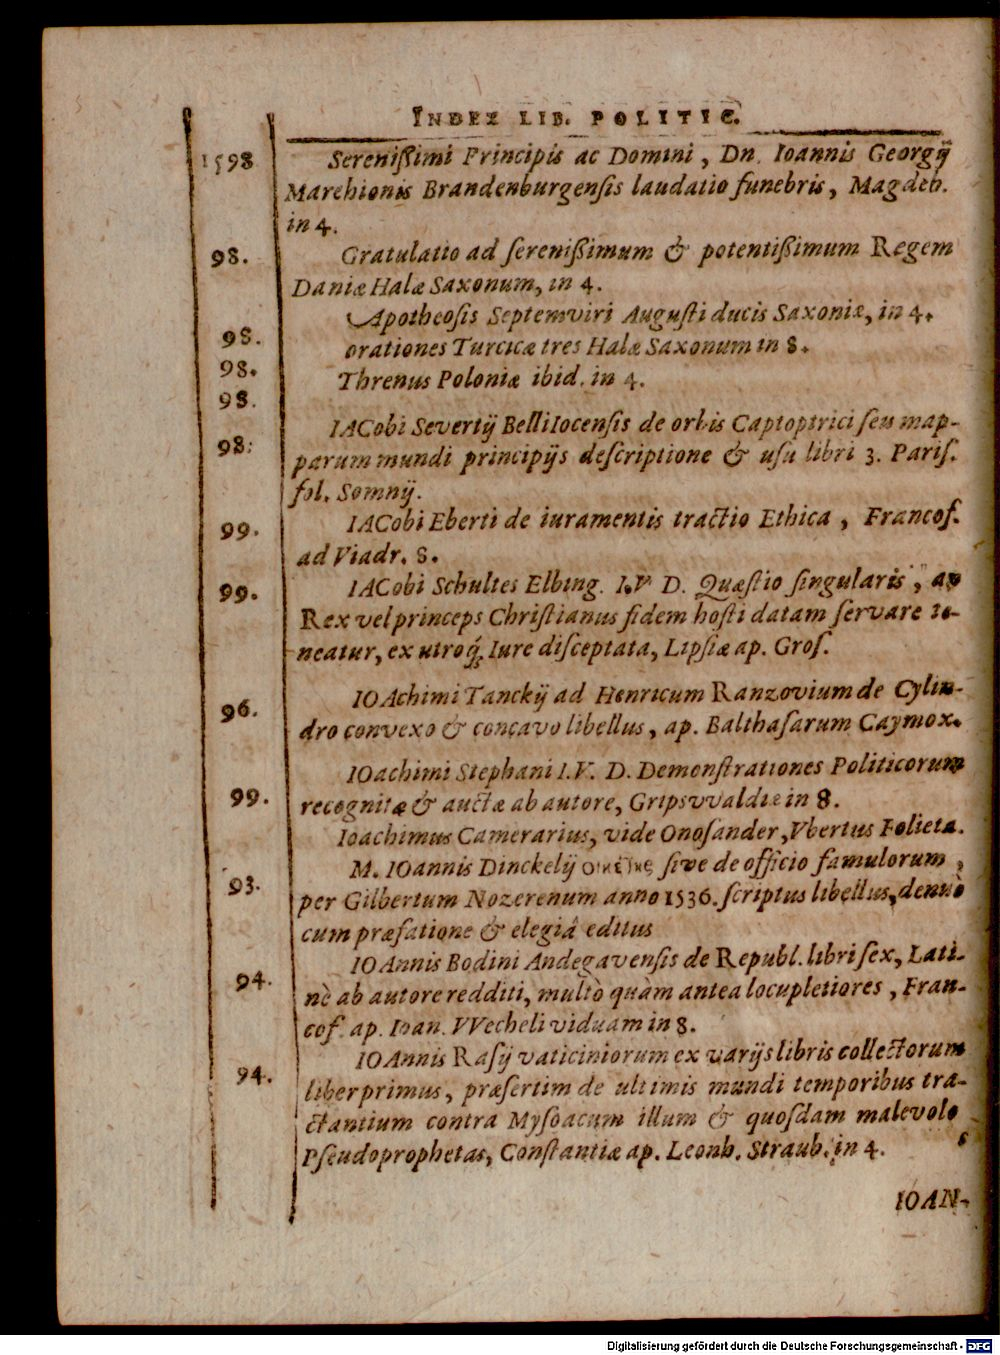 INDEX LIB. POLITIC.
1598 Sereniſſimi Principis ac Domini, Dn. Ioannis Georgij
Marchionis Brandenburgenſis laudatio funebris, Magdeb.
in 4.
98. Gratulatio ad ſereniſſimum & potentiſſimum Regem
Daniæ Halæ Saxonum, in 4.
Apotheoſis Septemviri Auguſti ducis Saxoniæ, in 4.
98. orationes Turcicæ tres Halæ Saxonum in 8.
98. Threnus Poloniæ ibid. in 4.
98.
IACobi Severtij Bellilocenſis de orbis Captoptrici ſeu map-
98: parum mundi principijs deſcriptione & uſu libri 3. Pariſ.
fol. Somnij.
99. IACobi Eberti de iuramentis tractio Ethica, Francof.
ad Viadr. 8.
99. IACobi Schultes Elbing. I.V. D. Quæſtio ſingularis, an
Rex vel princeps Chriſtianus fidem hoſti datam ſervare te-
neatur, ex utroq́; Iure diſceptata, Lipſiæ ap. Groſ.
96. IOAchimi Tanckij ad Henricum Ranzovium de Cylin-
dro convexo & concavo libellus, ap. Balthaſarum Caymox.
IOachimi Stephani I.V. D. Demonſtrationes Politicorum
99. recognitæ & auctæ ab autore, Gripsvvaldiæ in 8.
Ioachimus Camerarius, vide Onoſander, Vbertus Folieta.
93. M. IOannis Dinckelij οικέτης ſive de officio famulorum,
per Gilbertum Nozerenum anno 1536. ſcriptus libellus, denuò
cum præfatione & elegiâ editus
94. IOAnnis Bodini Andegavenſis de Republ. libri ſex, Lati-
nè ab autore redditi, multò quàm antea locupletiores, Fran-
cof. ap. Ioan. VVecheli viduam in 8.
94. IOAnnis Raſij vaticiniorum ex varijs libris collectorum
liber primus, præſertim de ultimis mundi temporibus tra-
ctantium contra Myſoacum illum & quoſdam malevolo
s
Pſeudoprophetas, Conſtantiæ ap. Leonh. Straub. in 4.
IOAN-
Digitalisierung gefördert durch die Deutsche Forschungsgemeinschaft - DFG